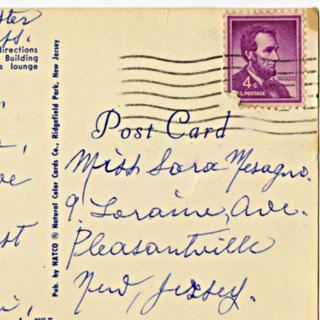 ster
ss.
directions
Building
s lounge
Pub. by NATCO ® Natural Color Cards Co., Ridgefield Park, New Jersey
4¢
U.S. POSTAGE
Post Card
Miss Sara Mesagno.
9. Loraine, Ave.
Pleasantville
New, Jersey.